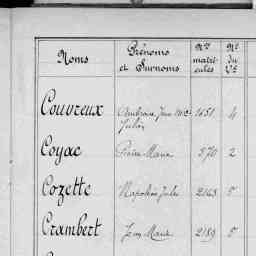 Noms Prénoms et Surnoms Nos matri- cules No du Vt
Couvreux Ambroise Jean Mie Julien 1651 4
Coyac Pierre Marie 570 2
Cozette Napoléon Jules 2163 5
Crambert Jean Marie 2189 5